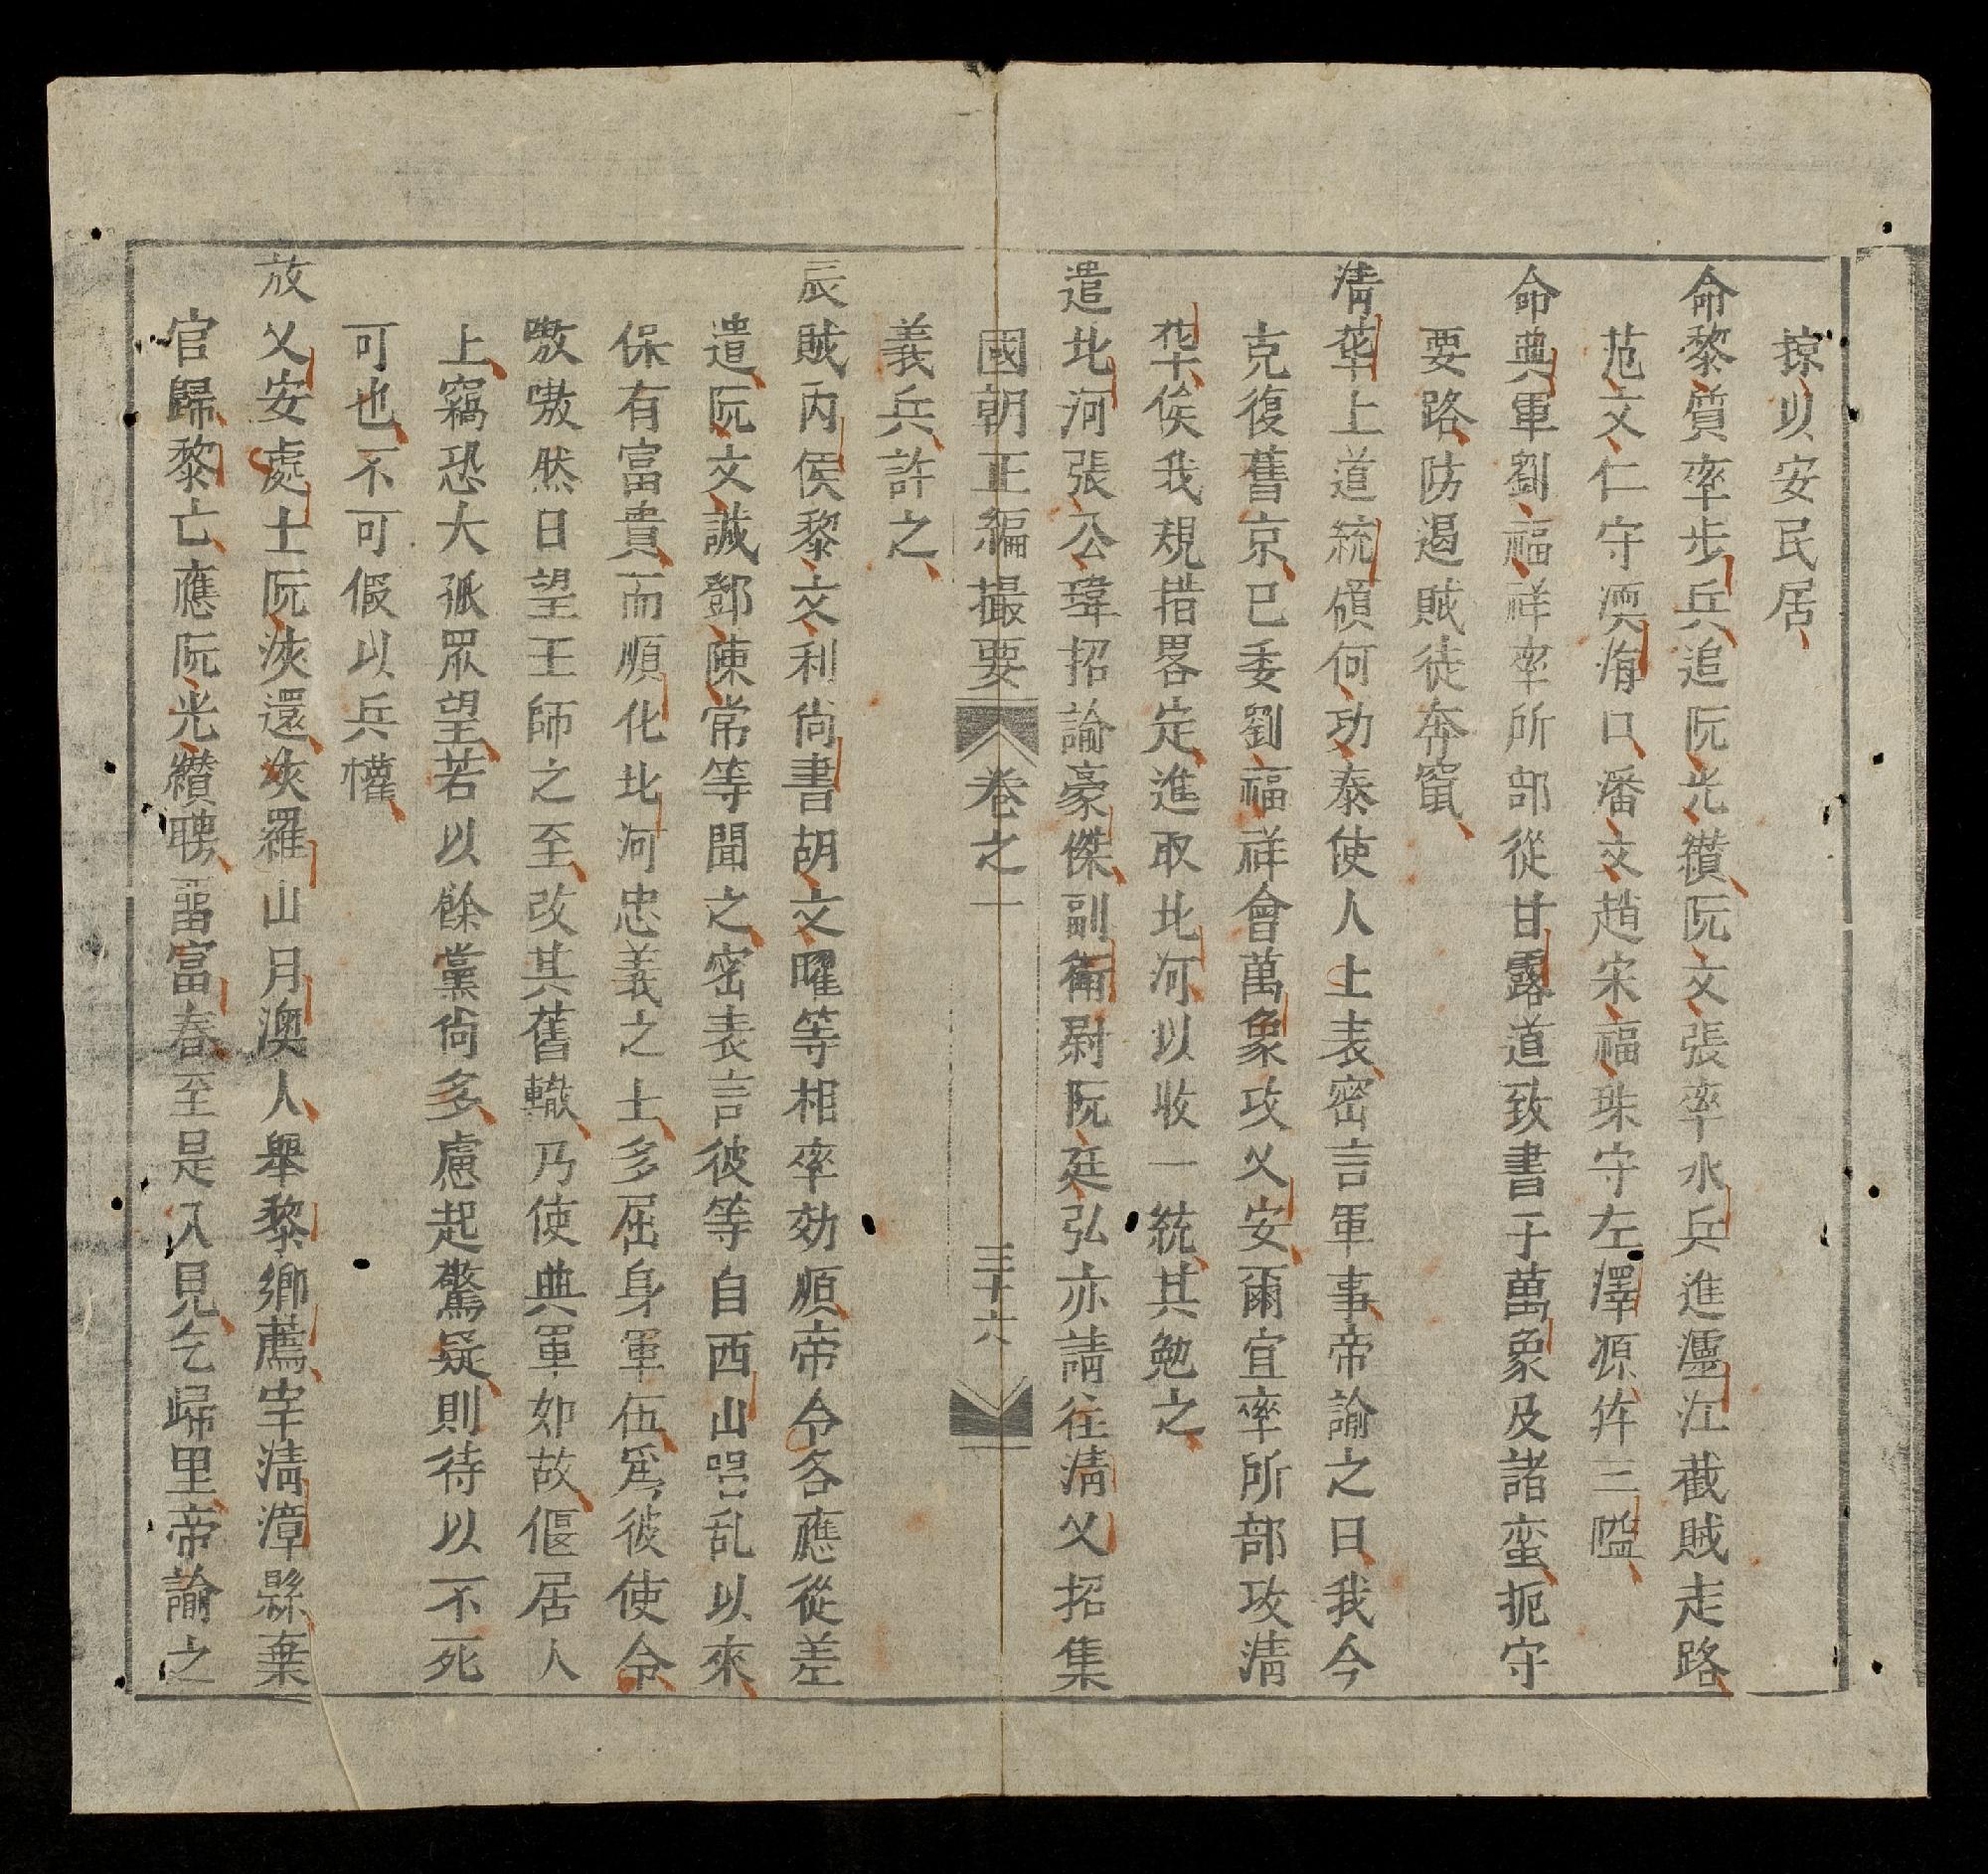 掠以安民居
命黎質率步兵追阮光纘阮文張率水兵進瀘江截賊走路
范文仁守澳海口潘文趙宋福珠守左澤源䢴三隘
命典軍劉福祥率所部從甘露道致書于萬象及諸蛮扼守
要路防遏賊徒奔竄
清華上道統領何功泰使人上表密言軍事帝諭之曰我今
克復舊京已委劉福祥會萬象攻乂安爾宜率所部攻清
華俟我規措畧定進取北河以收一統其勉之
遣北河張公瑋招諭豪傑副衛尉阮廷弘亦請往清乂招集
國朝正編撮要 卷之一 三十六
義兵許之
辰賊內侯黎文利尙書胡文曜等相率効順帝令各應從差
遣阮文誠鄧陳常等聞之密表言彼等自西山喪乱以來
保有富貴而順化北河忠義之士多屈身軍伍爲彼使令
嗷嗷然日望王師之至改其舊轍乃使典軍如故偃居人
上竊恐大孤眾望若以餘黨尙多慮起驚疑則待以不死
可也不可假以兵權
放乂安處士阮浹還浹羅山月澳人舉黎鄉薦宰清漳縣棄
官歸黎亡應阮光纘聘畱富春至是入見乞歸里帝諭之